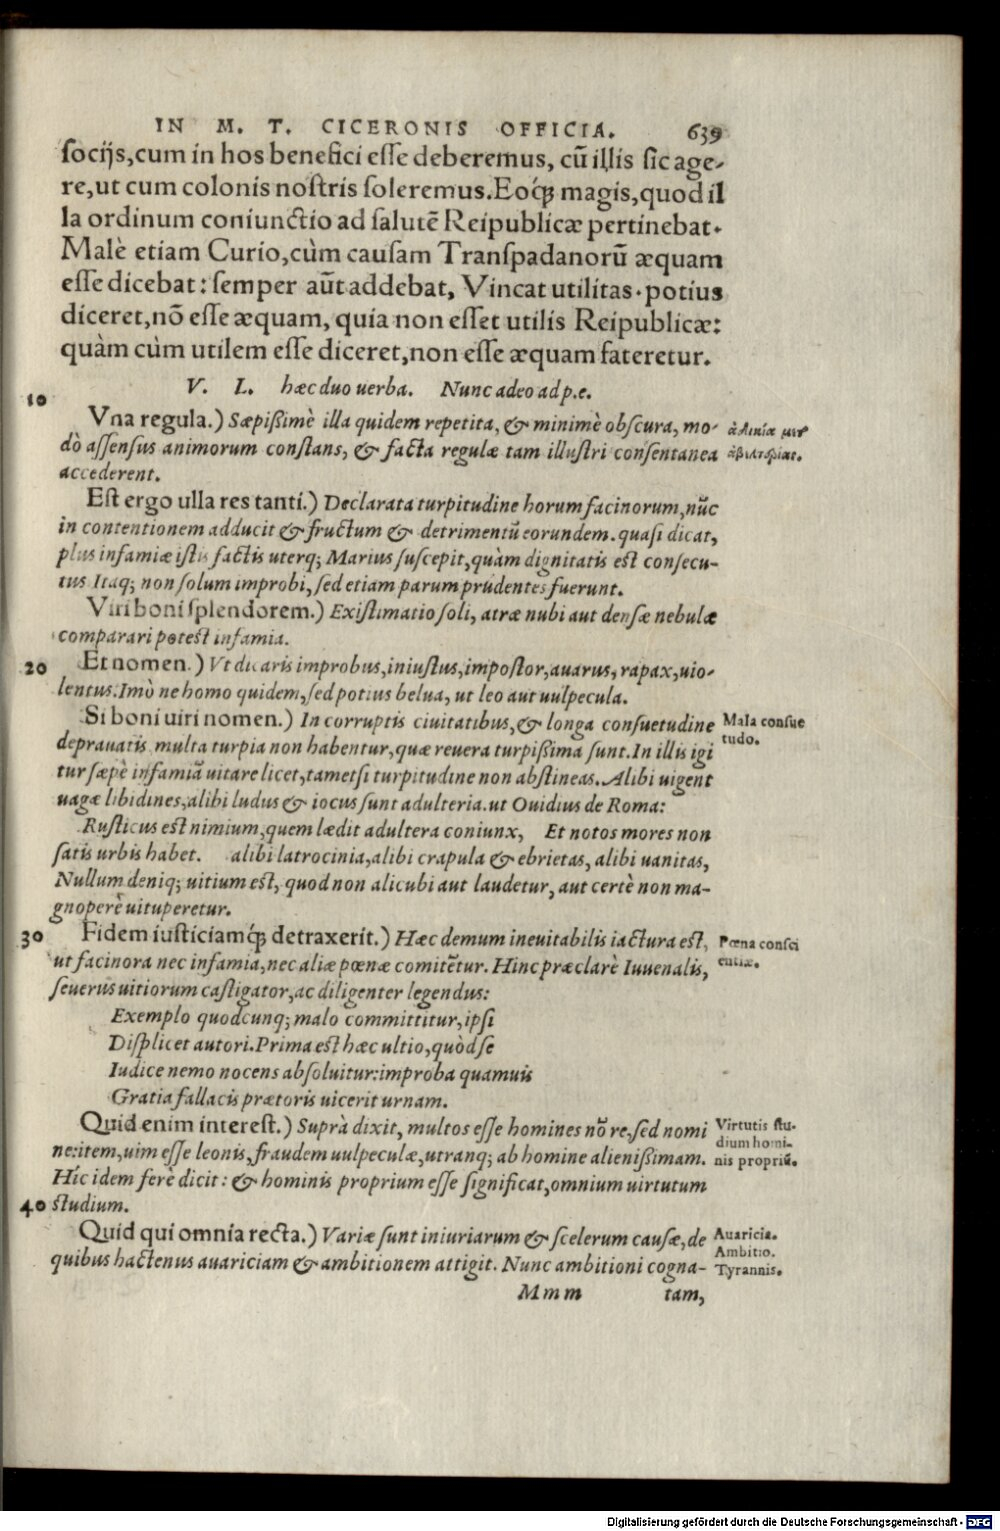 IN M. T. CICERONIS OFFICIA. 639
ſocijs,cum in hos benefici eſſe deberemus, cū illis ſic age-
re,ut cum colonis noſtris ſoleremus.Eoq́; magis,quod il
la ordinum coniunctio ad ſalutē Reipublicæ pertinebat.
Malè etiam Curio,cùm cauſam Tranſpadanorū æquam
eſſe dicebat: ſemper aūt addebat, Vincat utilitas. potius
diceret,nō eſſe æquam, quia non eſſet utilis Reipublicæ:
quàm cùm utilem eſſe diceret,non eſſe æquam fateretur.
V. L. hæc duo uerba. Nunc adeo ad p.e.
10
Vna regula.) Sæpißimè illa quidem repetita, & minimè obſcura, mo-
dò aſſenſus animorum conſtans, & facta regulæ tam illuſtri conſentanea
accederent.
Eſt ergo ulla res tanti.) Declarata turpitudine horum facinorum,nūc
in contentionem adducit & fructum & detrimentū eorundem. quaſi dicat,
plus infamiæ iſtis factis uterq; Marius ſuſcepit,quàm dignitatis eſt conſecu-
tus Itaq; non ſolum improbi, ſed etiam parum prudentes fuerunt.
Viri boni ſplendorem.) Exiſtimatio ſoli, atræ nubi aut denſæ nebulæ
comparari poteſt infamia.
20 Et nomen.) Vt dicaris improbus,iniuſtus,impoſtor,auarus, rapax,uio-
lentus.Imò ne homo quidem,ſed potius belua, ut leo aut uulpecula.
Si boni uiri nomen.) In corruptis ciuitatibus,& longa conſuetudine
Mala conſue
tudo.
deprauatis multa turpia non habentur,quæ reuera turpißima ſunt.In illis igi
tur ſæpè infamiā uitare licet,tametſi turpitudine non abſtineas. Alibi uigent
uagæ libidines,alibi ludus & iocus ſunt adulteria.ut Ouidius de Roma:
Ruſticus eſt nimium,quem lædit adultera coniunx, Et notos mores non
ſatis urbis habet. alibi latrocinia,alibi crapula & ebrietas, alibi uanitas,
Nullum deniq; uitium eſt, quod non alicubi aut laudetur, aut certè non ma-
gnoperè uituperetur.
30 Fidem iuſticiamq́; detraxerit.) Hæc demum ineuitabilis iactura eſt,
Pœna conſci
entiæ.
ut facinora nec infamia,nec aliæ pœnæ comitētur. Hinc præclarè Iuuenalis,
ſeuerus uitiorum caſtigator,ac diligenter legendus:
Exemplo quodcunq; malo committitur,ipſi
Diſplicet autori.Prima eſt hæc ultio,quòd ſe
Iudice nemo nocens abſoluitur:improba quamuis
Gratia fallacis prætoris uicerit urnam.
Quid enim intereſt.) Suprà dixit, multos eſſe homines nō re,ſed nomi
Virtutis ſtu-
dium homi-
nis propriū.
ne:item,uim eſſe leonis,fraudem uulpeculæ,utranq; ab homine alienißimam.
Hîc idem ferè dicit: & hominis proprium eſſe ſignificat,omnium uirtutum
40 ſtudium.
Quid qui omnia recta.) Variæ ſunt iniuriarum & ſcelerum cauſæ,de
Auaricia.
Ambitio.
Tyrannis.
quibus hactenus auariciam & ambitionem attigit. Nunc ambitioni cogna-
M m m tam,
Digitalisierung gefördert durch die Deutsche Forschungsgemeinschaft - DFG